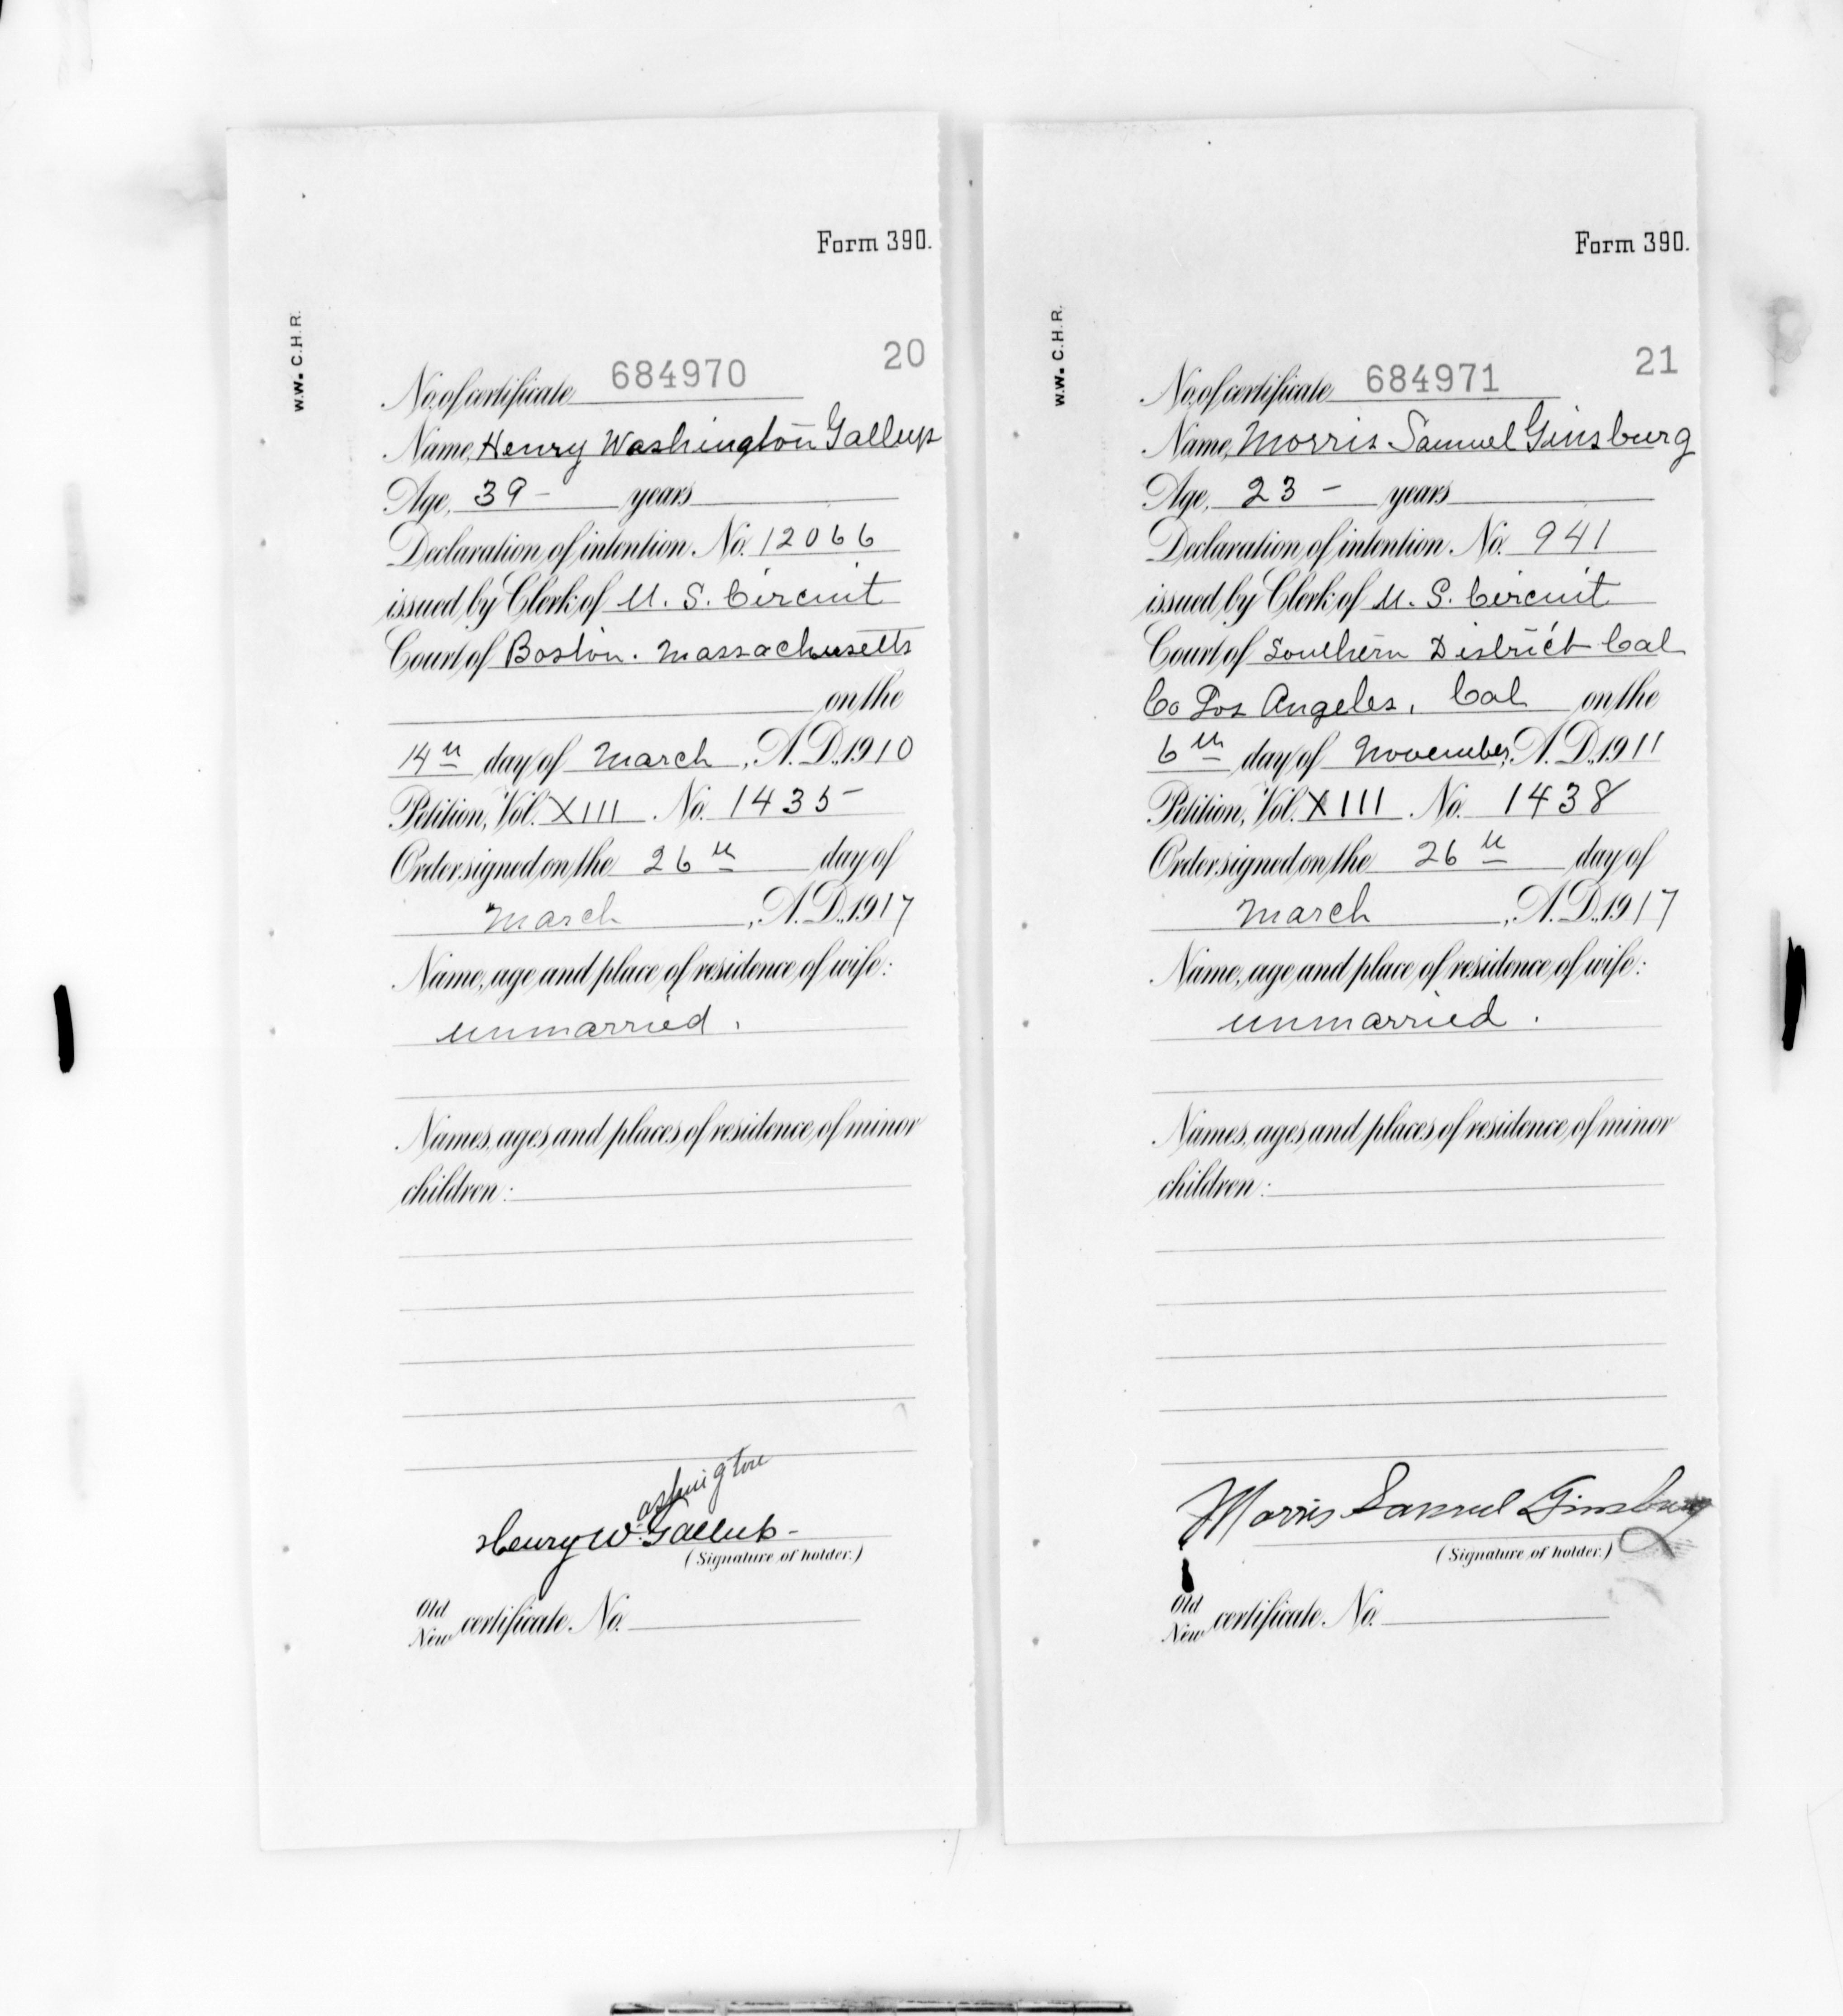 Form 390.
W.W. C.H.R.
20
No. of certificate 684970
Name, Henry Washington Gallup
Age, 39 - years
Declaration of intention No. 12066
issued by Clerk of U. S. Circuit
Court of Boston. Massachusetts
on the
14th day of March, A.D. 1910
Petition, Vol. XIII No. 1435
Order signed on the 26th day of
March, A.D. 1917
Name, age and place of residence of wife:
unmarried.
Names, ages and places of residence of minor
children:
ashington
Henry W. Gallup-
(Signature of holder.)
Old
New certificate No.
Form 390.
W.W. C.H.R.
21
No. of certificate 684971
Name, Morris Samuel Ginsburg
Age, 23 - years
Declaration of intention No. 941
issued by Clerk of U. S. Circuit
Court of Southern District Cal
Co Los Angeles, Cal on the
6th day of November, A.D. 1911
Petition, Vol. XIII No. 1438
Order signed on the 26th day of
March, A.D. 1917
Name, age and place of residence of wife:
unmarried.
Names, ages and places of residence of minor
children:
Morris Samuel Ginsburg
(Signature of holder.)
Old
New certificate No.